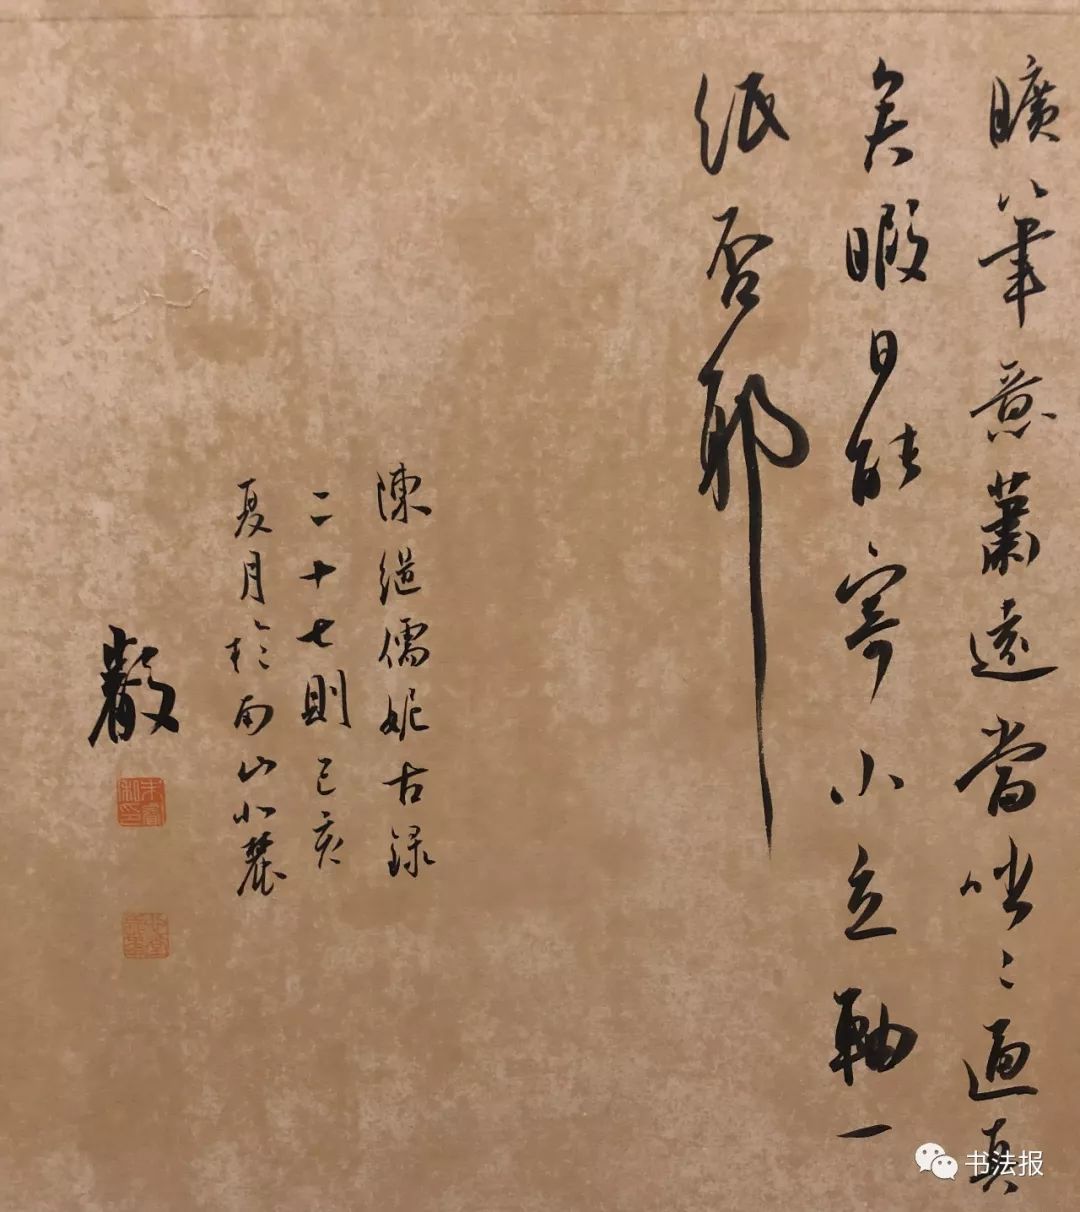 曠筆意蕭遠當咄〻逼真
矣暇日能寄小立軸一
紙否耶
陳繼儒妮古録
二十七則己亥
夏月於南山北麓
书法报